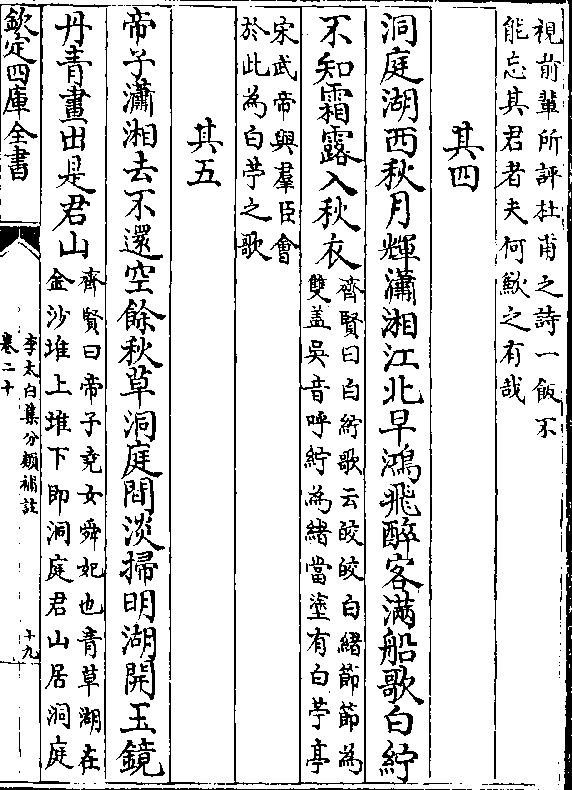 視前輩所評杜甫之詩一飯不
能忘其君者夫何歉之有哉
其四
洞庭湖西秋月輝瀟湘江北早鴻飛醉客滿船歌白紵
不知霜露入秋衣
齊賢曰白紵歌云皎皎白緒節節為
雙盖吳音呼紵為緒當塗有白苧亭
宋武帝與羣臣會
於此為白苧之歌
其五
帝子瀟湘去不還空餘秋草洞庭間淡掃明湖開玉鏡
丹青畫出是君山
齊賢曰帝子堯女舜妃也青草湖在
金沙堆上堆下即洞庭君山居洞庭
欽定四庫全書
李太白集分類補註
卷二十
十九